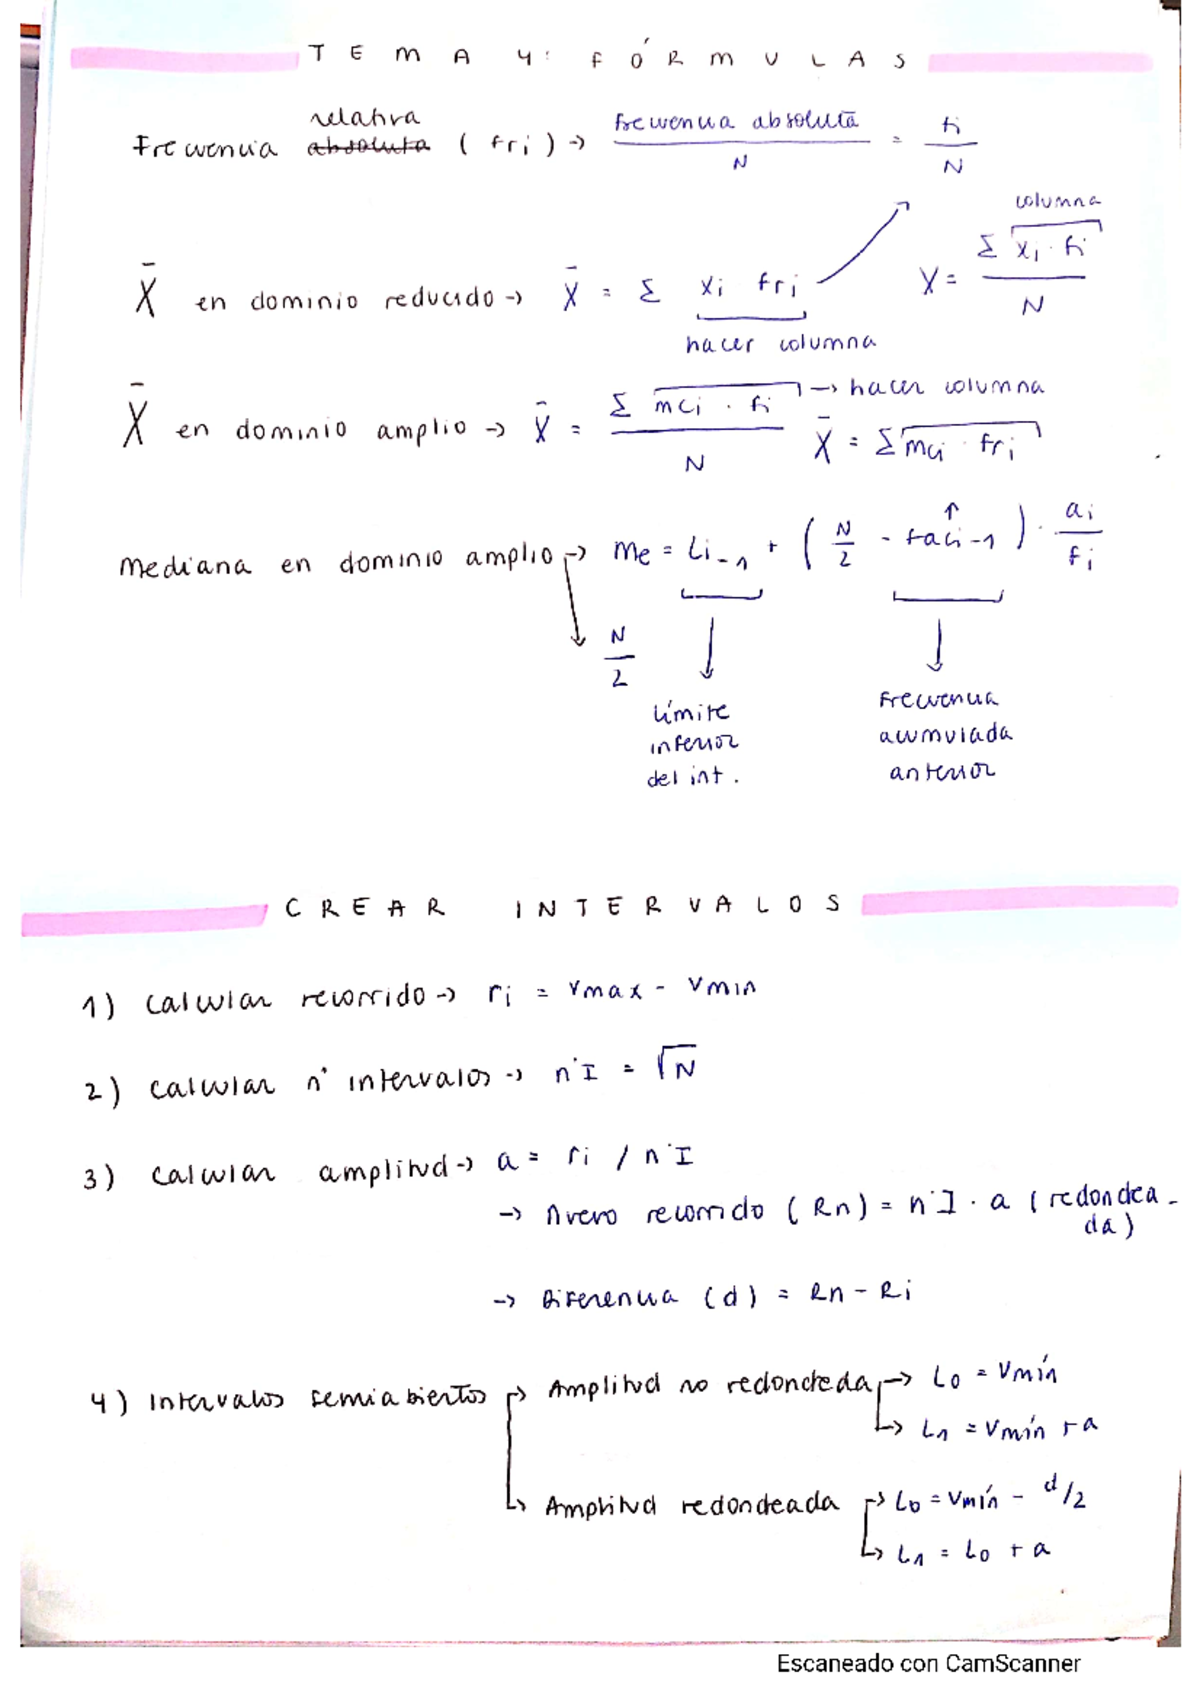 TEMA 4: FÓRMULAS
Frecuencia relativa ~~absoluta~~ (fri) → frecuencia absoluta / N = fi / N
X̄ en dominio reducido → X̄ = Σ xi fri
hacer columna
columna
X = Σ xi · fi / N
X̄ en dominio amplio → X̄ = Σ mci · fi / N → hacer columna
X̄ = Σ mci · fri
Mediana en dominio amplio → Me = Li-1 + (N/2 - faci-1) · ai / fi
N/2
límite inferior del int.
Frecuencia acumulada anterior
CREAR INTERVALOS
1) Calcular recorrido → ri = vmax - vmin
2) Calcular nº intervalos → nºI = √N
3) Calcular amplitud → a = ri / nºI
→ Nuevo recorrido (Rn) = nºI · a (redondea-
da)
→ Diferencia (d) = Rn - Ri
4) Intervalos semiabiertos → Amplitud no redondeda → L0 = Vmín
↳ L1 = Vmín + a
↳ Amplitud redondeada → L0 = Vmín - d/2
↳ L1 = L0 + a
Escaneado con CamScanner